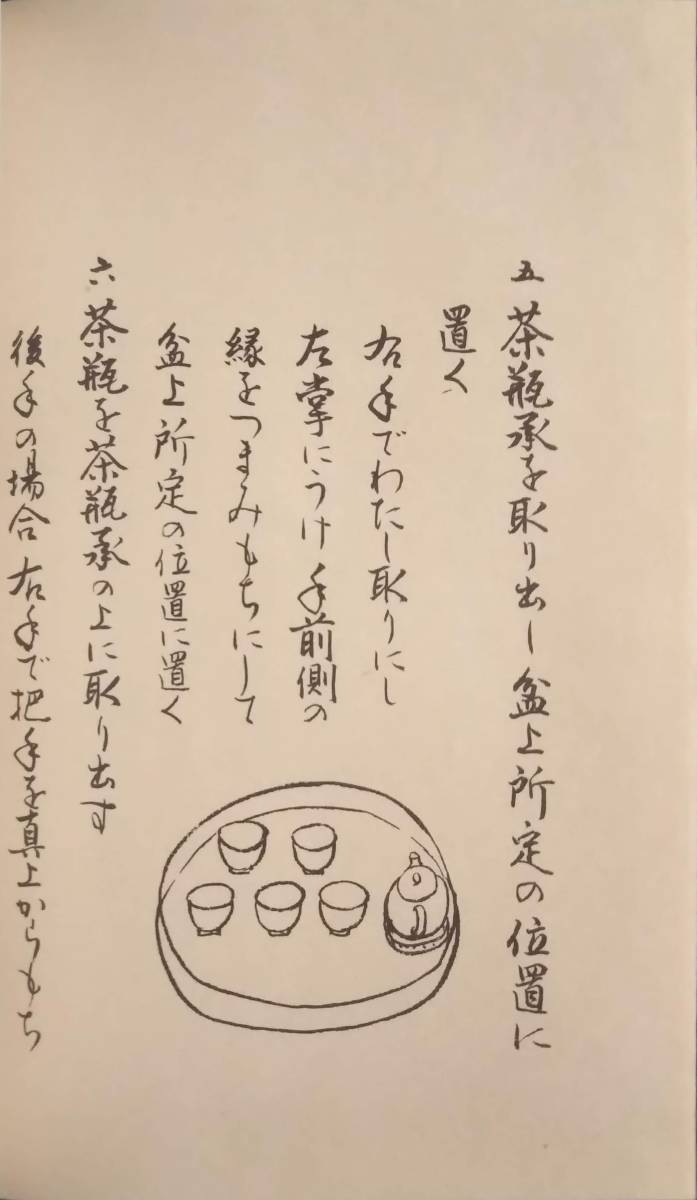 五 茶瓶承を取り出し盆上所定の位置に
置く
右手でわたし取りにし
左掌にうけ手前側の
縁をつまみもちにして
盆上所定の位置に置く
六 茶瓶を茶瓶承の上に取り出す
後手の場合右手で把手を真上からもち